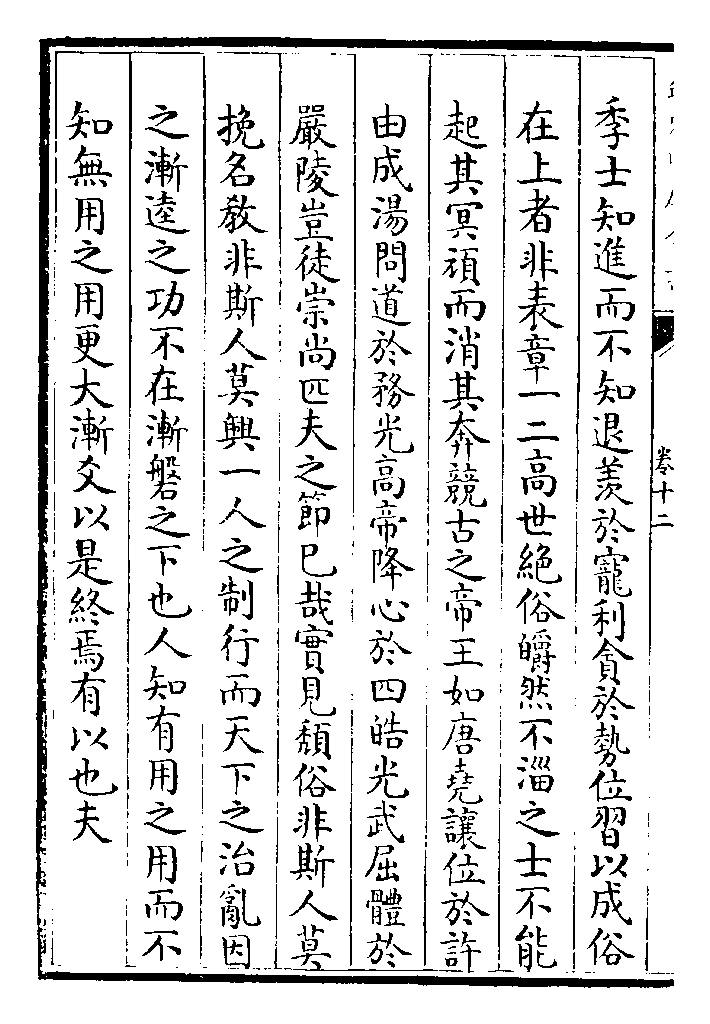 卷十二
季士知進而不知退羨於寵利貪於勢位習以成俗
在上者非表章一二高世絶俗皭然不淄之士不能
起其冥頑而消其奔競古之帝王如唐堯讓位於許
由成湯問道於務光高帝降心於四皓光武屈體於
嚴陵豈徒崇尚匹夫之節已哉實見頽俗非斯人莫
挽名敎非斯人莫興一人之制行而天下之治亂因
之漸逵之功不在漸磐之下也人知有用之用而不
知無用之用更大漸爻以是終焉有以也夫